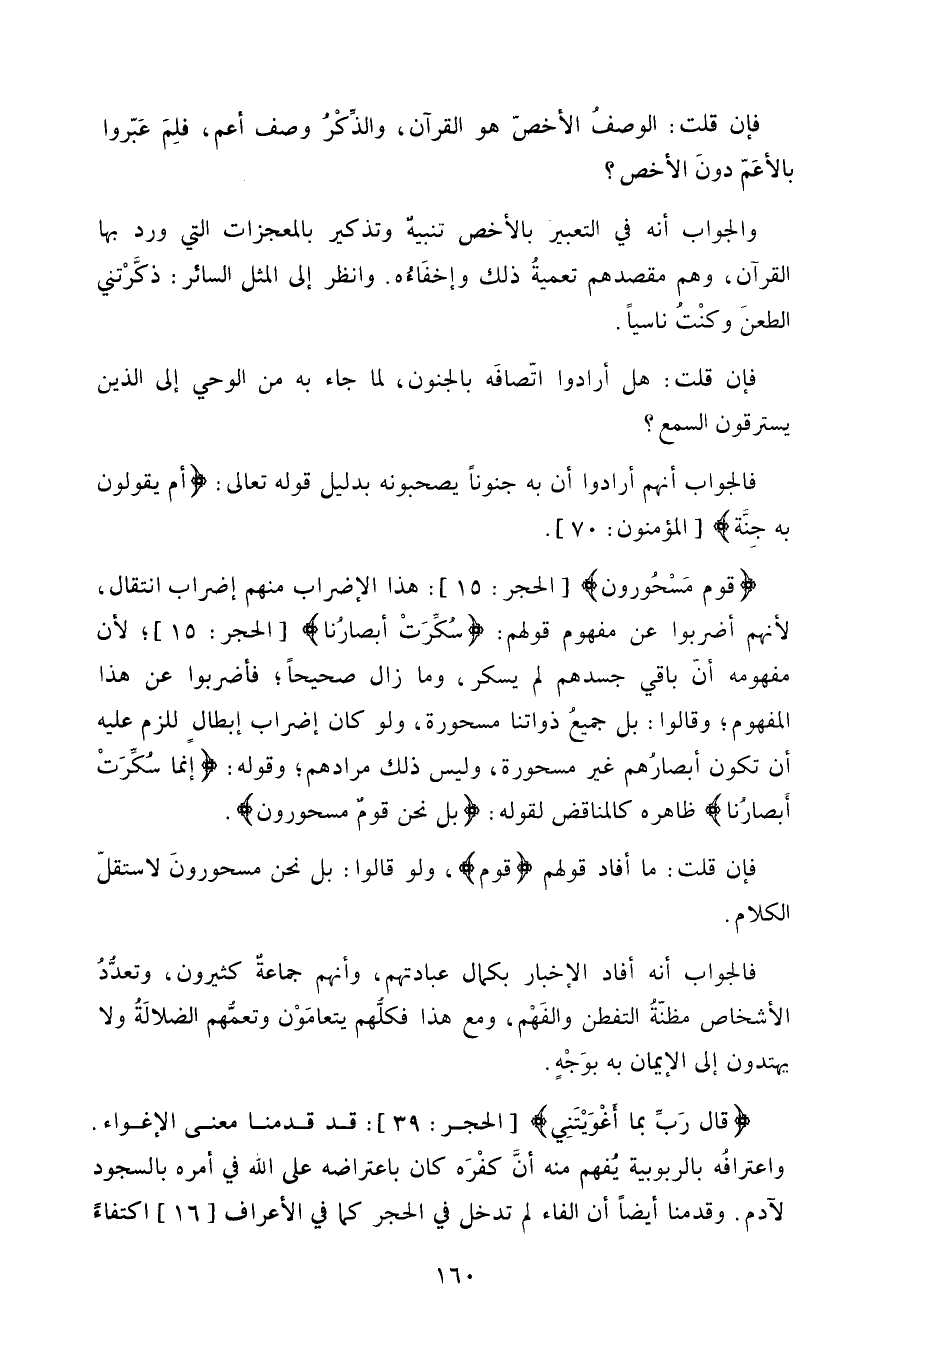 فإن قلت: الوصفُ الأخصّ هو القرآن، والذِّكْرُ وصف أعم، فلِمَ عَبّروا
بالأعَمّ دونَ الأخص؟
والجواب أنه في التعبير بالأخص تنبيهٌ وتذكير بالمعجزات التي ورد بها
القرآن، وهم مقصدهم تعميةُ ذلك وإخفَاءُه. وانظر إلى المثل السائر: ذكَّرْتني
الطعنَ وكنْتُ ناسياً.
فإن قلت: هل أرادوا اتّصافَه بالجنون، لما جاء به من الوحي إلى الذين
يسترقون السمع؟
فالجواب أنهم أرادوا أن به جنوناً يصحبونه بدليل قوله تعالى: ﴿أم يقولون
به جِنَّة﴾ [المؤمنون: ٧٠].
﴿قوم مَسْحُورون﴾ [الحجر: ١٥]: هذا الإضراب منهم إضراب انتقال،
لأنهم أضربوا عن مفهوم قولهم: ﴿سُكِّرَتْ أبصارُنا﴾ [الحجر: ١٥]؛ لأن
مفهومه أنّ باقي جسدهم لم يسكر، وما زال صحيحاً؛ فأضربوا عن هذا
المفهوم؛ وقالوا: بل جميعُ ذواتنا مسحورة، ولو كان إضراب إبطالٍ للزم عليه
أن تكون أبصارُهم غير مسحورة، وليس ذلك مرادهم؛ وقوله: ﴿إنما سُكِّرَتْ
أَبصارُنا﴾ ظاهره كالمناقض لقوله: ﴿بل نحن قومٌ مسحورون﴾.
فإن قلت: ما أفاد قولهم ﴿قوم﴾، ولو قالوا: بل نحن مسحورونَ لاستقلّ
الكلام.
فالجواب أنه أفاد الإخبار بكمال عبادتهم، وأنهم جماعةٌ كثيرون، وتعدُّدُ
الأشخاص مظنّةُ التفطن والفَهْم، ومع هذا فكلُّهم يتعامَوْن وتعمُّهم الضلالَةُ ولا
يهتدون إلى الإيمان به بوَجْهٍ.
﴿قال رَبِّ بما أَغْوَيْتَنِي﴾ [الحجر: ٣٩]: قد قدمنا معنى الإغواء.
واعترافُه بالربوبية يُفهم منه أنَّ كفْرَه كان باعتراضه على الله في أمره بالسجود
لآدم. وقدمنا أيضاً أن الفاء لم تدخل في الحجر كما في الأعراف [١٦] اكتفاءً
١٦٠